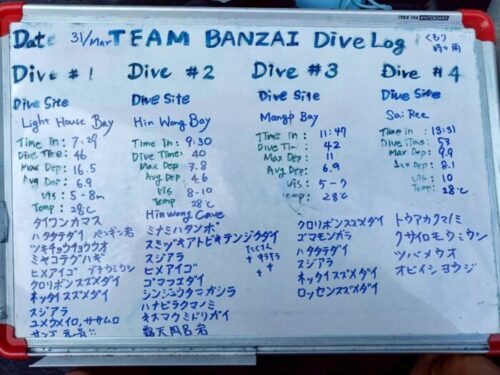 Date 31/Mar TEAM BANZAI Dive Log くもり 時々雨
Dive #1
Dive Site
Light House Bay
Time In: 7:29
Dive Time: 46
Max Dep: 16.5
Avg Dep: 6.9
Vis: 5-8m
Temp: 28℃
タイワンカマス
ハタタテダイ ペンギン君
ツキチョウチョウウオ
ミヤコテグハギ
ヒメアイゴ
クロリボンスズメダイ
ネッタイスズメダイ
スジアラ
ユメウメイロ, ササムロ
サンゴ 元気!!
Dive #2
Dive Site
Hin Wong Bay
Time In: 9:30
Dive Time: 40
Max Dep: 7.8
Avg Dep: 4.6
Vis: 8-10
Temp: 28℃
Hin Wong Cave
ミナミハタンポ
スミツキアトヒキテンジクダイ
スジアラ
ヒメアイゴ
ゴマフエダイ
シンジュウタマガシラ
ハナビラクマノミ
キスマクミドリガイ
露天風呂岩
Dive #3
Dive Site
Mango Bay
Time In: 11:47
Dive Time: 42
Max Dep: 11
Avg Dep: 6.9
Vis: 5-7
Temp: 28℃
クロリボンスズメダイ
ゴマモンガラ
ハタタテダイ
スジアラ
ネッタイスズメダイ
ロッセンスズメダイ
Dive #4
Dive Site
Sai Ree
Time In: 13:31
Dive Time: 57
Max Dep: 9.9
Ave Dep: 8.1
Vis: 10
Temp: 28℃
トウアカクマノミ
クサイロモウミウシ
ツバメウオ
オビイシヨウジ